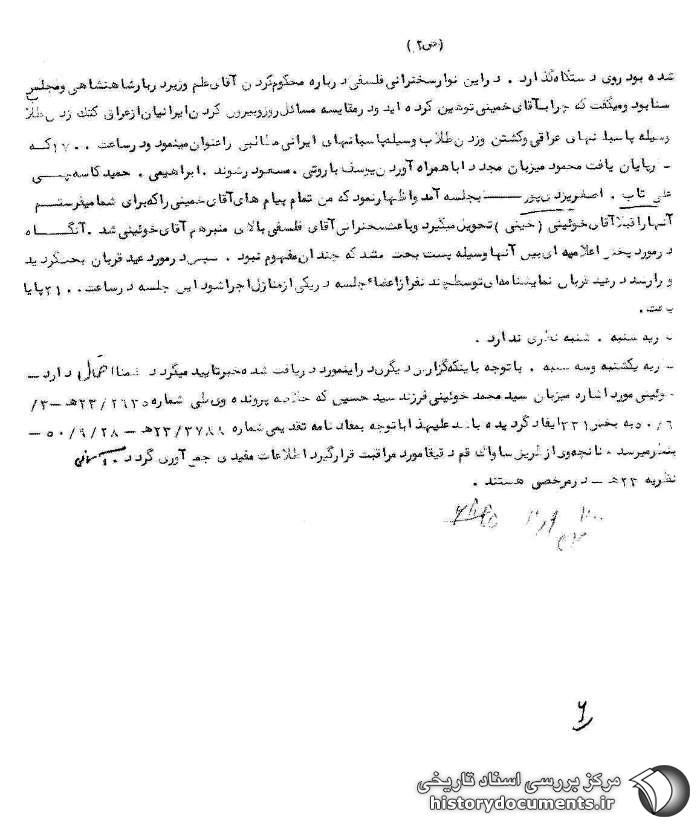 (ص۲)
شده بود روی دستگاه گذارد . در این نوار سخنرانی فلسفی درباره محکوم کردن آقای علم وزیر دربار شاهنشاهی و مجلس
سنا بود و میگفت که چرا به آقای خمینی توهین کرده اید و در مقایسه مسائل روز و بیرون کردن ایرانیان از عراق کتک زدن طلاب
وسیله پاسبانهای عراقی و کشتن و زدن طلاب وسیله پاسبانهای ایرانی مطالبی را عنوان مینمود و در ساعت ۱۷۰۰ که
پایان یافت محمود میزبان مجددا با همراه آوردن یوسف باروتی . مسعود رشوند . ابراهیمی . حمید کاسه چی
علی تاب . اصغر یزدی پور بجلسه آمد و اظهار نمود که من تمام پیام های آقای خمینی را که برای شما میفرستم
آنها را قبلا آقای خوئینی (خینی) تحویل میگیرد و باعث سخنرانی آقای فلسفی بالای منبر هم آقای خوئینی شد . آنگاه
در مورد پخش اعلامیه ای بین آنها وسیله پست بحث شد که چندان مفهوم نبود . سپس در مورد عید قربان بحث گردید
و قرار شد در عید قربان نمایشنامه ای توسط چند نفر از اعضاء جلسه در یکی از منازل اجرا شود این جلسه در ساعت ۲۱۰۰ پایا
یافت .
نظریه شنبه . شنبه نظری ندارد .
نظریه یکشنبه و سه شنبه . با توجه باینکه گزارش دیگری در اینمورد دریافت شده خبر تایید میگردد ضمنا احتمال دارد -
خوئینی مورد اشاره میزبان سید محمد خوئینی فرزند سید حسین که خلاصه پرونده وی طی شماره ۲۳/۲۶۳۵هـ - ۳/
۵۰/۶ به بخش ۳۳۱ ایفاد گردیده باشد علیهذا با توجه بمفاد نامه تقدیمی شماره ۲۳/۳۷۸۸هـ - ۵۰/۹/۲۸ -
بنظر میرسد چنانچه وی از طریق ساواک قم دقیقا مورد مراقبت قرار گیرد اطلاعات مفیدی جمع آوری گردد .
نظریه ۲۳هـ - در مرخصی هستند .
۶
مرکز بررسی اسناد تاریخی
historydocuments.ir